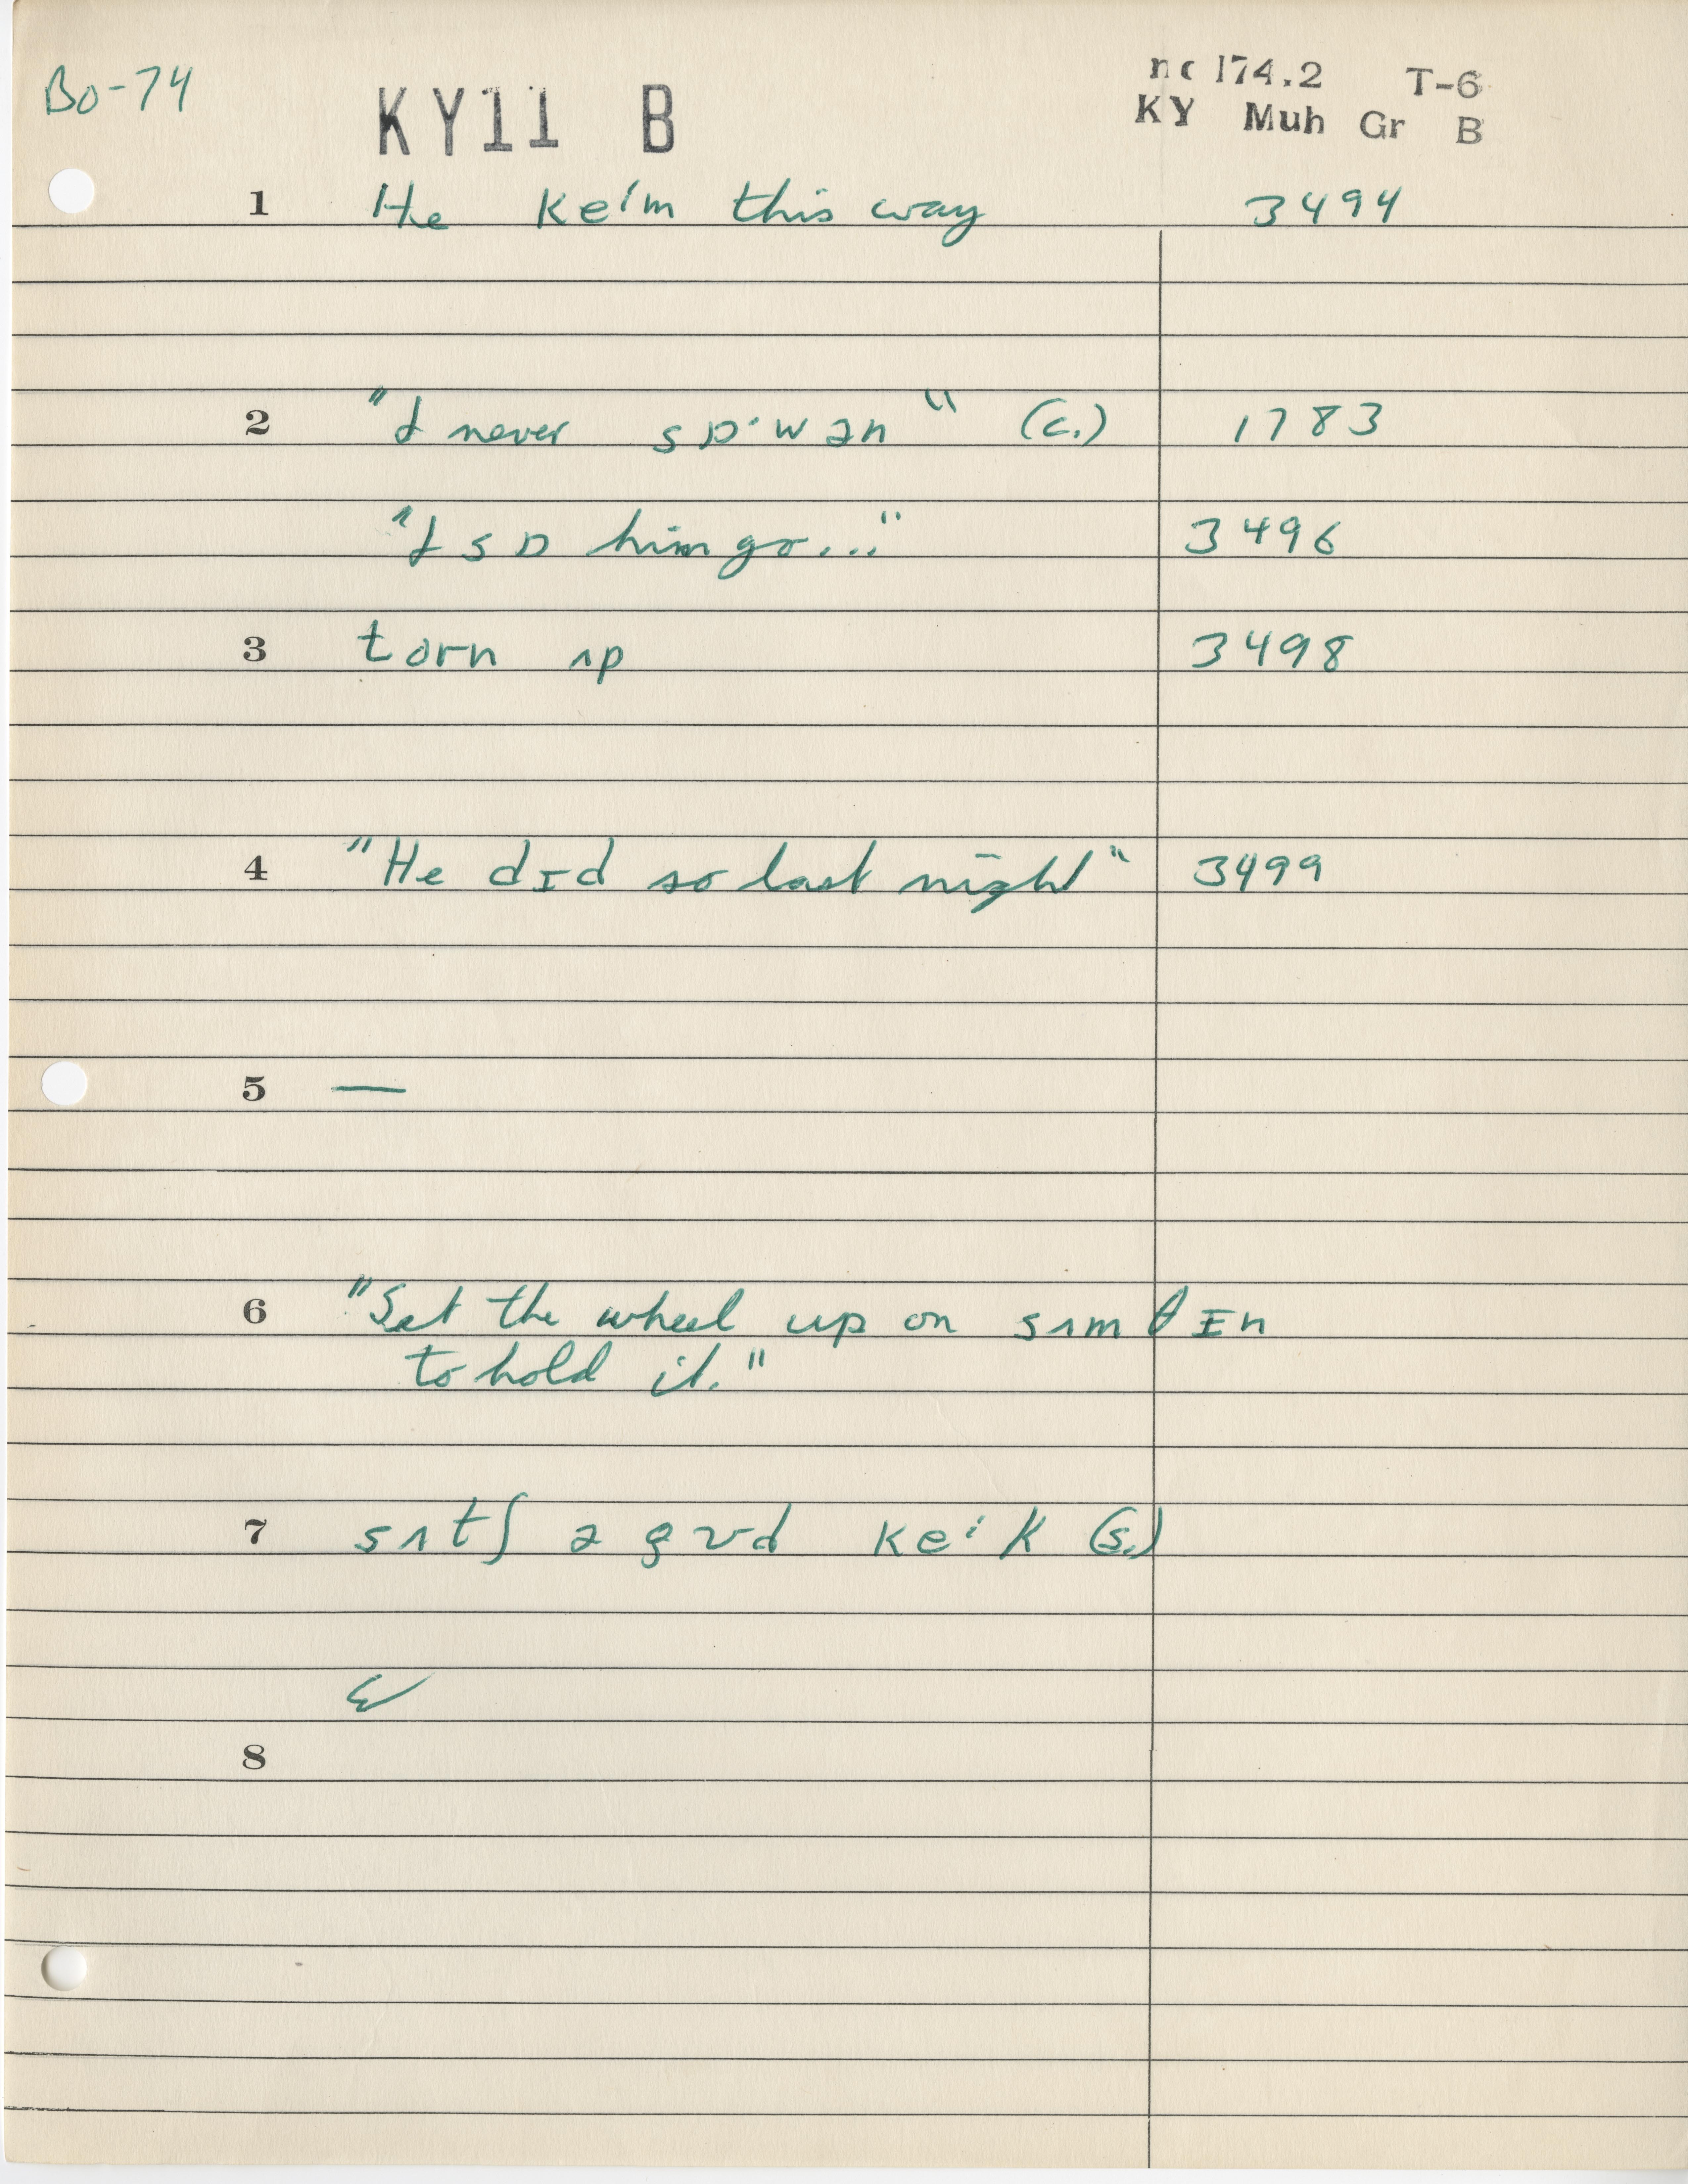 Bo-74
KY11 B
nc 174.2 T-6
KY Muh Gr B
1 He keˈm this way 3494
2 "I never sɒ·wən" (c.) 1783
"I sɒ him go..." 3496
3 torn ʌp 3498
4 "He dɪd so last night" 3499
5 —
6 "Set the wheel up on sʌmθɪn
to hold it."
7 sʌtʃ ə gʊd keˈk (s.)
8